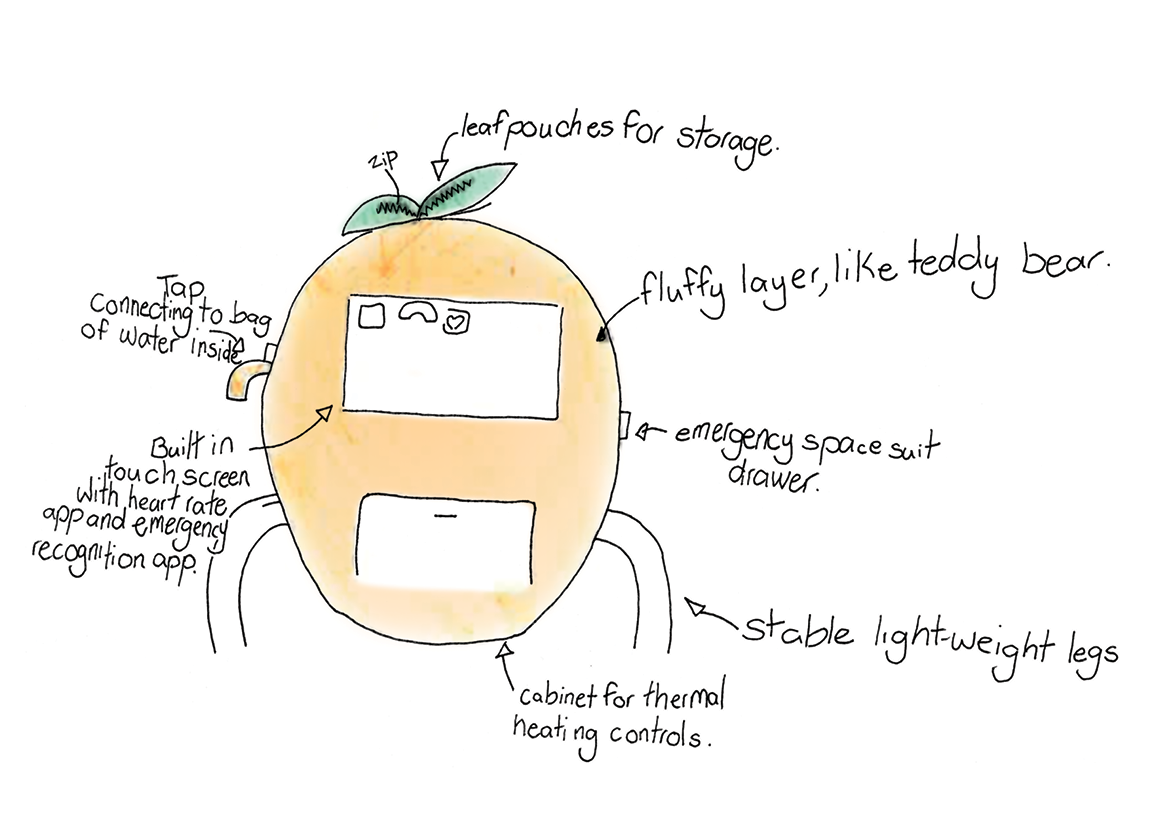 leaf pouches for storage.
zip
fluffy layer, like teddy bear.
Tap
connecting to bag
of water inside
emergency space suit
drawer.
Built in
touch screen
with heart rate
app and emergency
recognition app.
stable light-weight legs
cabinet for thermal
heating controls.